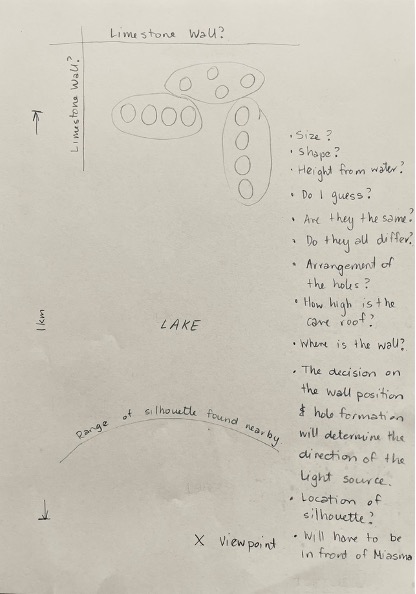 Limestone Wall?
Limestone Wall?
1km
LAKE
Range of silhouette found nearby
X Viewpoint
• Size?
• Shape?
• Height from water?
• Do I guess?
• Are they the same?
• Do they all differ?
• Arrangement of
the holes?
• How high is the
cave roof?
• Where is the wall?
• The decision on
the wall position
& hole formation
will determine the
direction of the
light source.
• Location of
silhouette?
• Will have to be
in front of Miasma